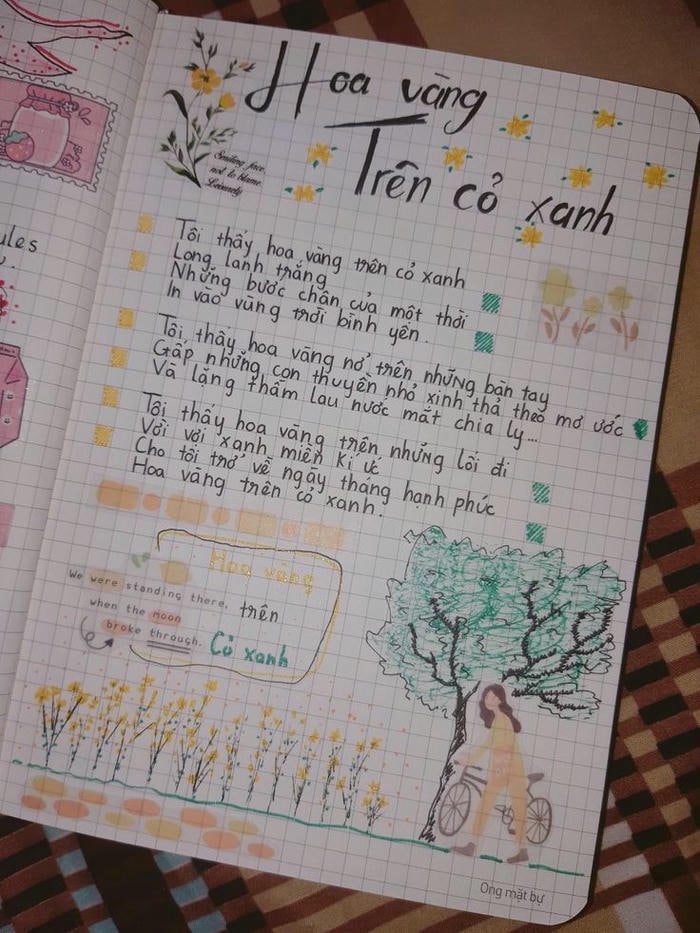 Hoa vàng
Trên cỏ xanh
Smiling face,
not to blame
ules
Tôi thấy hoa vàng trên cỏ xanh
Long lanh trắng
Những bước chân của một thời
In vào vùng trời bình yên.
Tôi thấy hoa vàng nở trên những bàn tay
Gấp những con thuyền nhỏ xinh thả theo mơ ước
Và lặng thầm lau nước mắt chia ly...
Tôi thấy hoa vàng trên những lối đi
Vời vợi xanh miền kí ức
Cho tôi trở về ngày tháng hạnh phúc
Hoa vàng trên cỏ xanh.
Hoa vàng
trên
Cỏ xanh
We were standing there,
when the moon
broke through.
Ong mặt bự